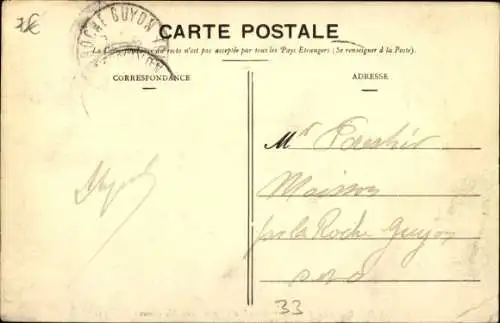 3€
ROCHE GUYON
CARTE POSTALE
La Correspondance au recto n'est pas acceptée par tous les Pays Etrangers (Se renseigner à la Poste).
CORRESPONDANCE
ADRESSE
Mr
Maisson
par la Roche Guyon
33